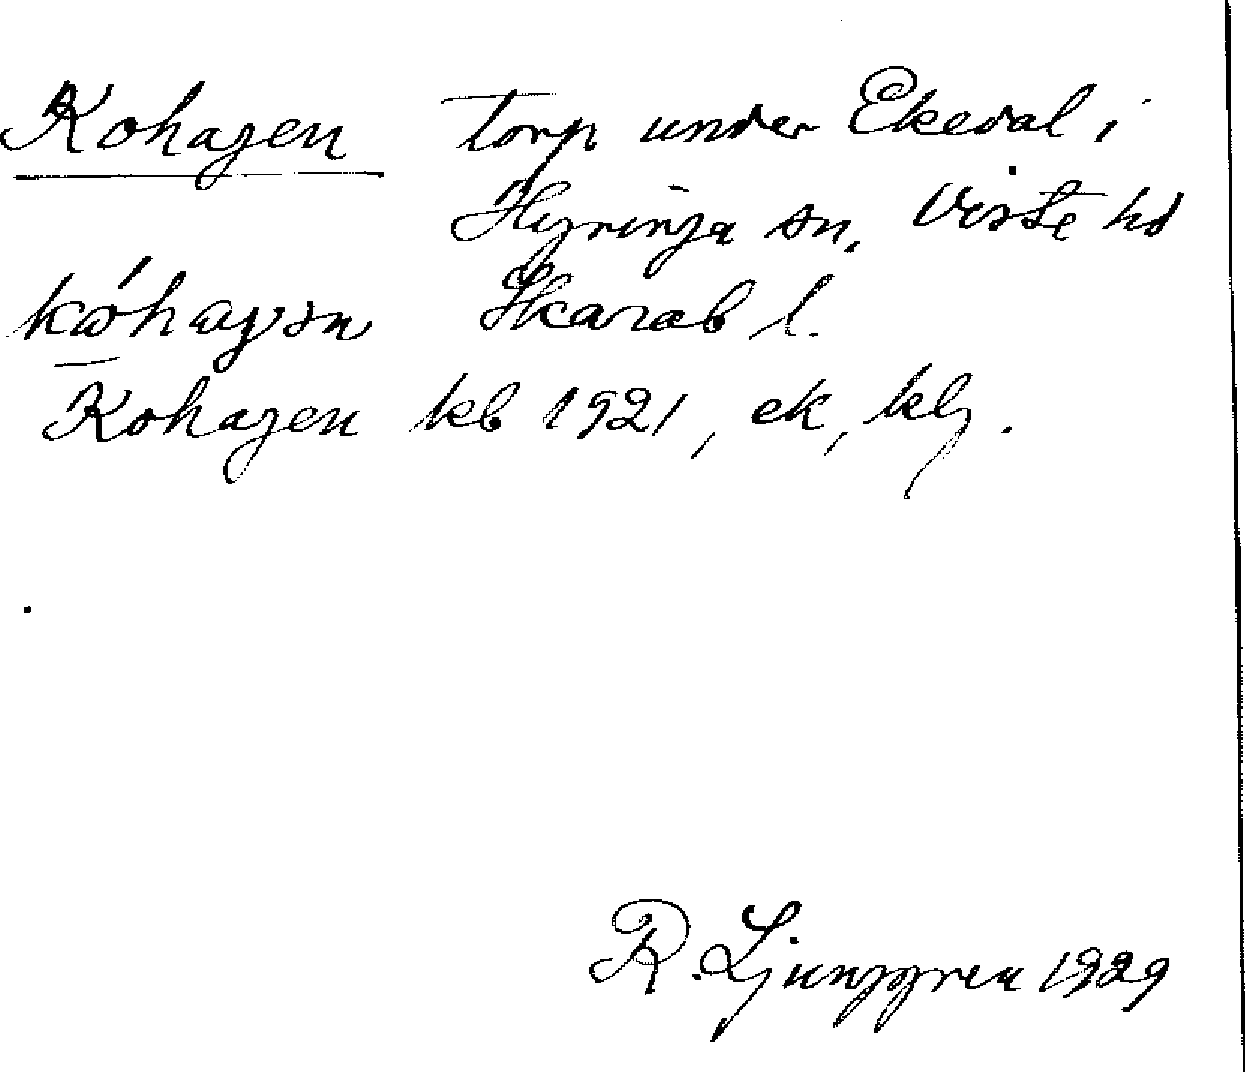 Kohagen Torp under Ekedal i
Hyringa sn, Viste hd
Skarab l.
Kohagen kb 1921, ek, klj.
R. Ljunggren 1929